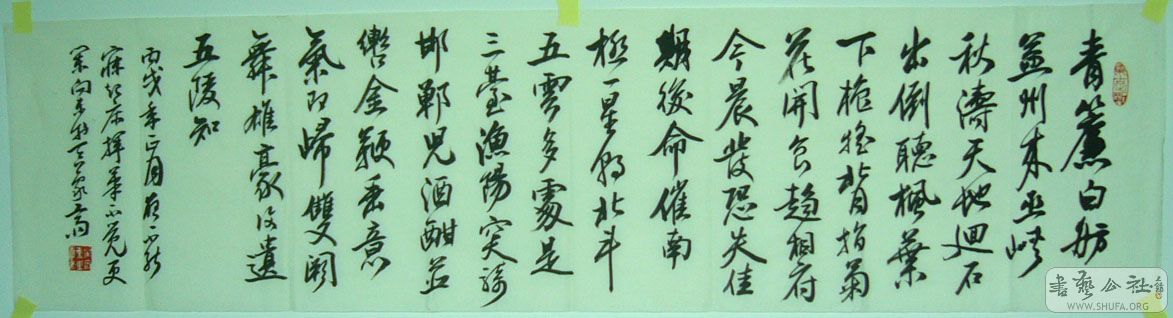 青簾白舫
益州來巫峽
秋濤天地迴石
出倒聽楓葉
下櫓搖背指菊
花開貪趨相府
今晨發恐失佳
期後命催南
極一星朝北斗
五雲多處是
三臺漁陽突騎
邯鄲兒酒酣並
轡金鞭垂意
氣即歸雙闕
舞雄豪復遣
五陵知
丙戌年正月夜不能
寐起床揮筆不覺更
書藝公社
WWW.SHUFA.ORG